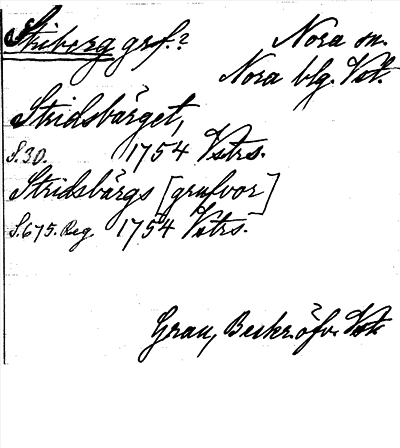 Striberg grf.? Nora sn.
Nora blg. Vst.
Stridsbärget,
S.30. 1754 Vstrs.
Stridsbärgs [grufvor]
S.675. Reg. 1754 Vstrs.
Grau, Beskr. öfv. Vstm